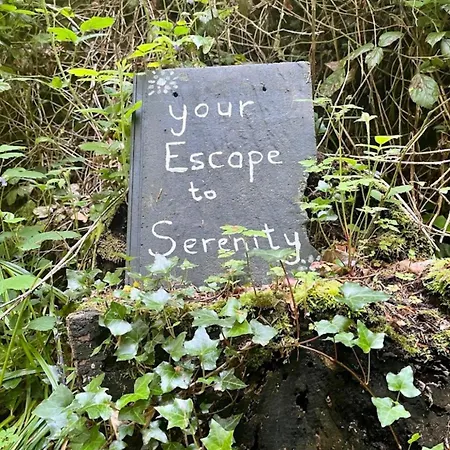 your
Escape
to
Serenity